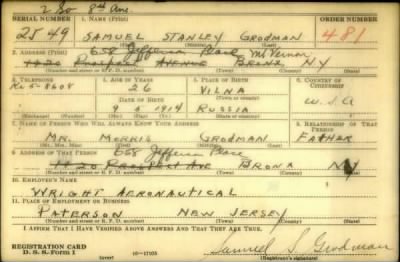 2 So 8th Ave.
SERIAL NUMBER 1. NAME (Print) ORDER NUMBER
2549 SAMUEL STANLEY GRODMAN 481
(First) (Middle) (Last)
658 Jefferson Place Mt Vernon
2. ADDRESS (Print)
1120 Prospect AVENUE BRONX NY
(Number and street or R. F. D. number) (Town) (County) (State)
3. TELEPHONE 4. AGE IN YEARS 5. PLACE OF BIRTH 6. COUNTRY OF CITIZENSHIP
26 VILNA
Ki 5-8608 DATE OF BIRTH (Town or county) U.S.A
9 5 1914 RUSSIA
(Exchange) (Number) (Mo.) (Day) (Yr.) (State or country)
7. NAME OF PERSON WHO WILL ALWAYS KNOW YOUR ADDRESS 8. RELATIONSHIP OF THAT PERSON
MR. MORRIS GRODMAN FATHER
(Mr., Mrs., Miss) (First) (Middle) (Last)
658 Jefferson Place
9. ADDRESS OF THAT PERSON
1120 Prospect Ave BRONX NY
(Number and street or R. F. D. number) (Town) (County) (State)
10. EMPLOYER'S NAME
WRIGHT AERONAUTICAL
11. PLACE OF EMPLOYMENT OR BUSINESS
PATERSON NEW JERSEY
(Number and street or R. F. D. number) (Town) (County) (State)
I AFFIRM THAT I HAVE VERIFIED ABOVE ANSWERS AND THAT THEY ARE TRUE.
REGISTRATION CARD
D. S. S. Form 1 (over) 16-17105 Samuel S. Grodman
(Registrant's signature)